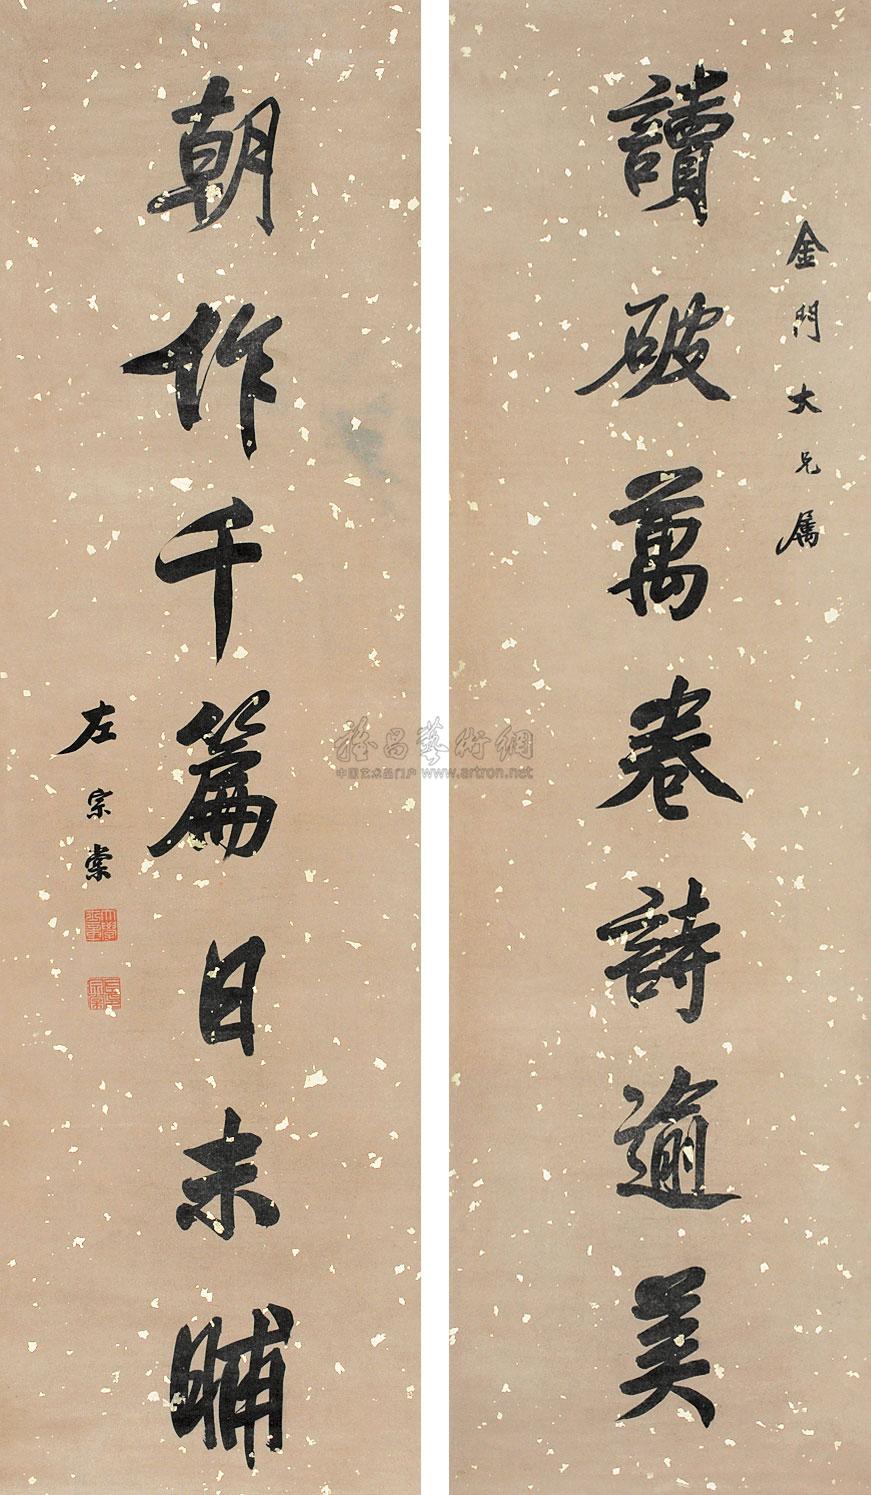 金門大兄属
讀破萬卷詩逾美
朝作千篇日未晡
左宗棠
雅昌藝術網
中国艺术品门户 www.artron.net